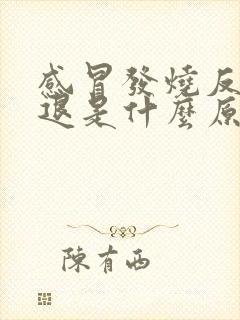 感冒發燒反
退是什麼原
陳有西